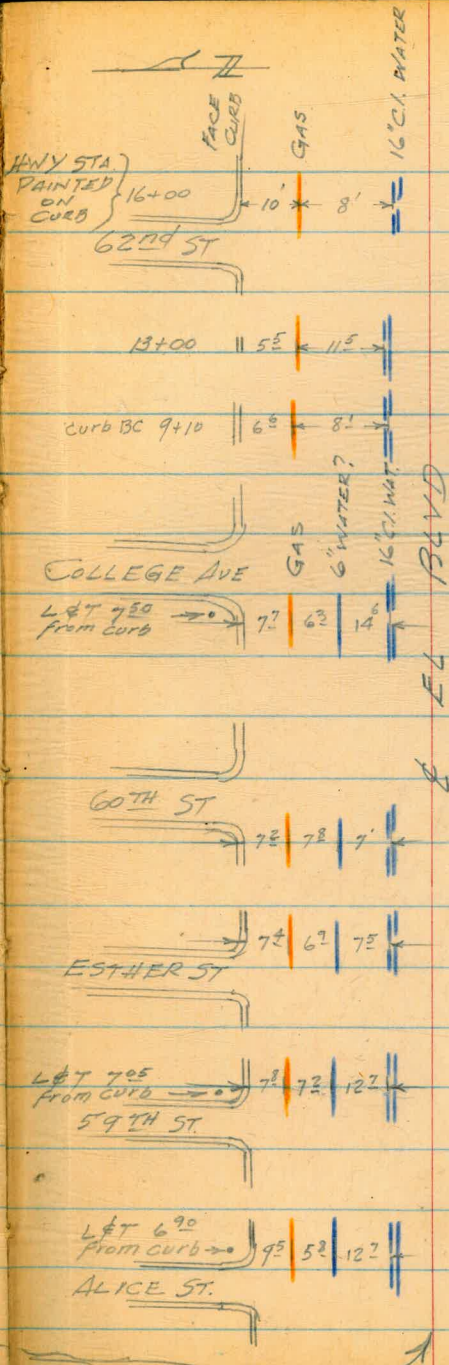 N
FACE
CURB
GAS
16" C.I. WATER
HWY STA.
PAINTED
ON
CURB
16+00
10'
8'
62nd ST
13+00
5⁵
11⁵
curb BC 9+10
6⁶
8'
COLLEGE AVE
GAS
6" WATER?
16" C.I. WAT.
L&T 7⁵⁰
from curb
7⁷
6³
14⁶
℄ EL BLVD
60TH ST
7²
7⁸
7'
7⁴
6⁹
7⁵
ESTHER ST
L&T 7⁰⁵
from curb
7⁸
7²
12⁷
59TH ST.
L&T 6⁹⁰
from curb
9⁵
5⁸
12⁷
ALICE ST.